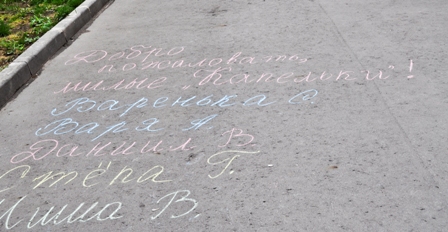 Добро
пожаловать,
милые "Капельки"!
Варенька С.
Варя А
Даниил В.
Стёпа Г.
Миша В.